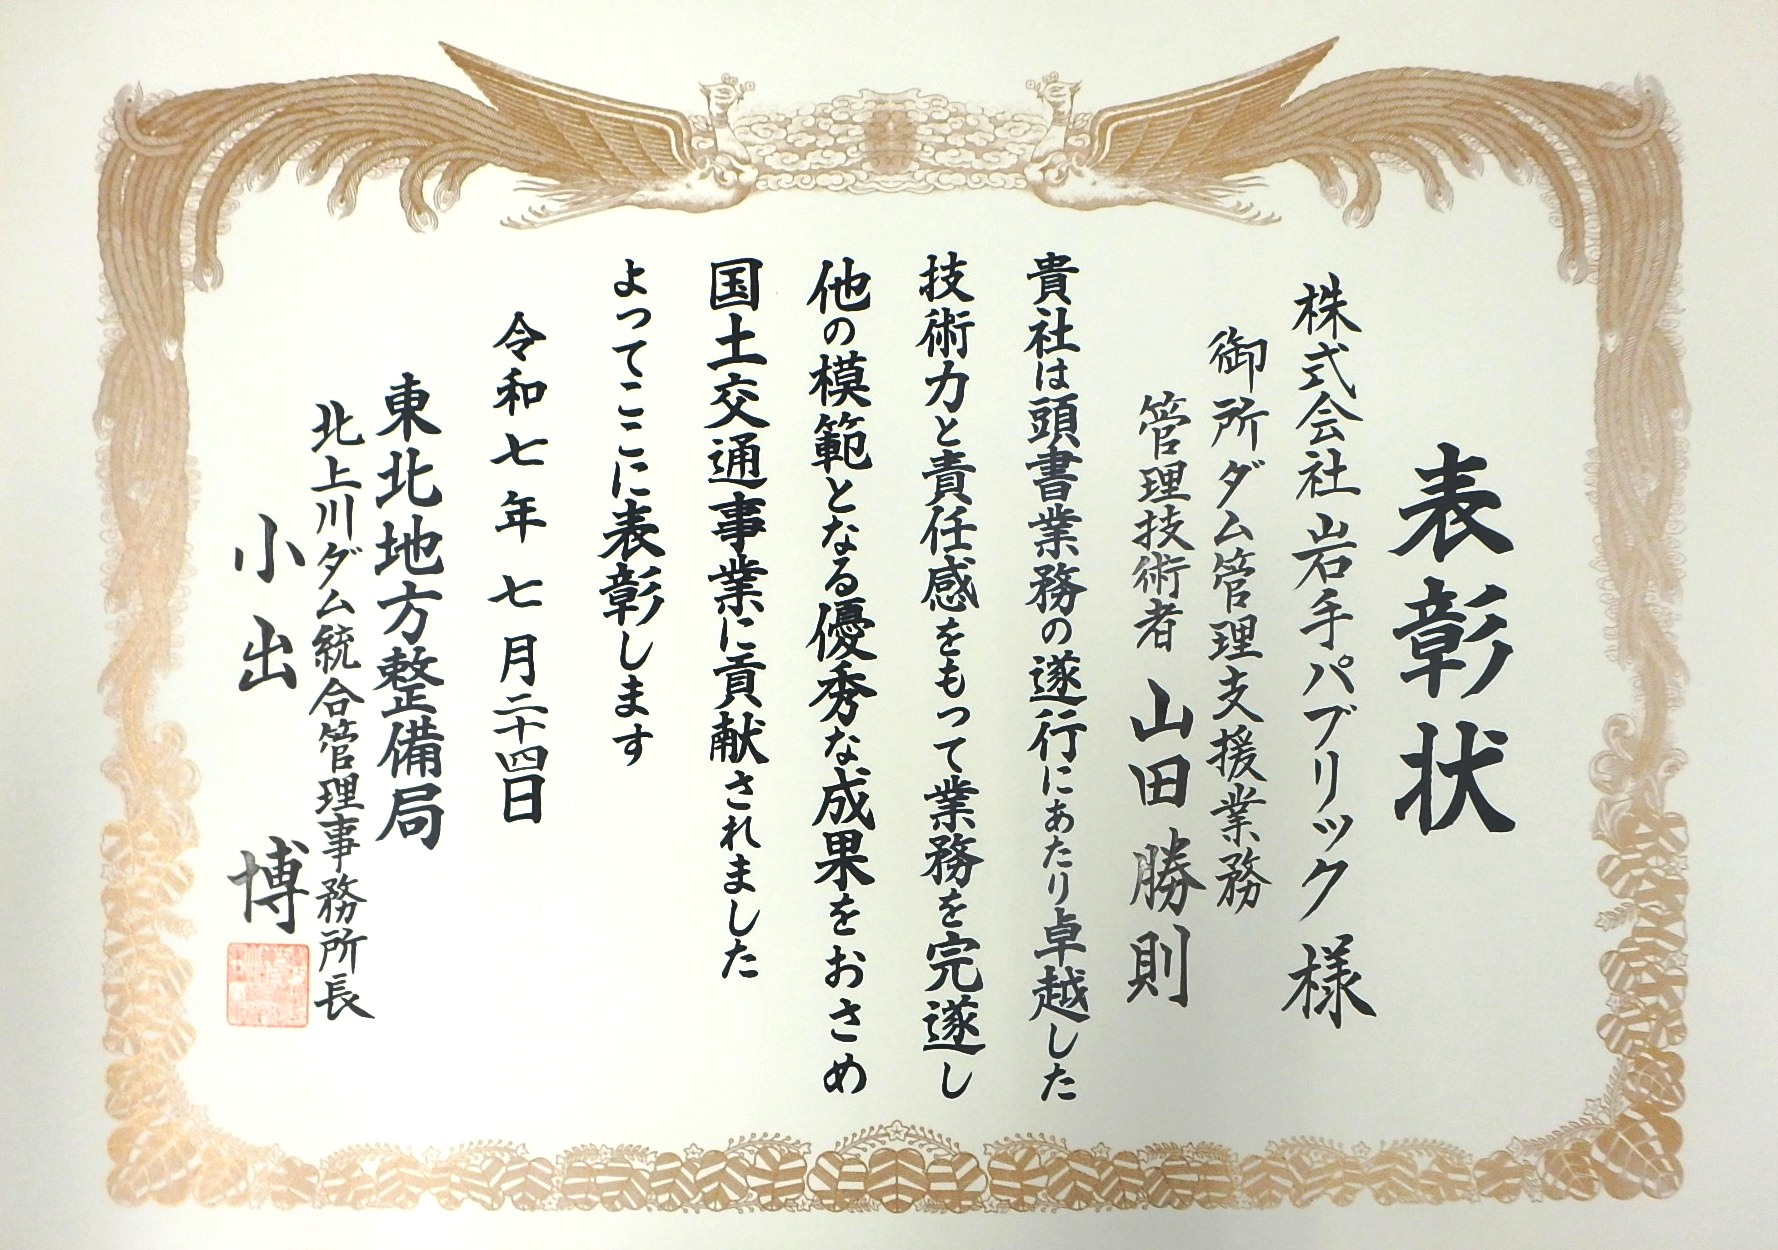 表彰状
株式会社岩手パブリック 様
御所ダム管理支援業務
管理技術者 山田勝則
貴社は頭書業務の遂行にあたり卓越した
技術力と責任感をもって業務を完遂し
他の模範となる優秀な成果をおさめ
国土交通事業に貢献されました
よってここに表彰します
令和七年七月二十四日
東北地方整備局
北上川ダム統合管理事務所長
小出 博